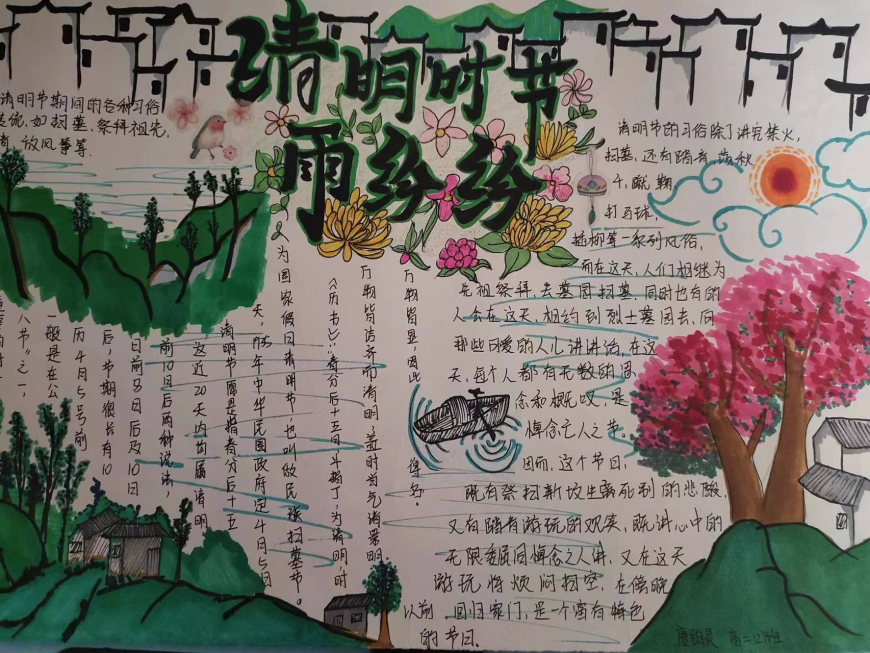 清明时节
雨纷纷
清明节期间的各种习俗
如扫墓、祭拜祖先、
放风筝等.
清明节的习俗除了讲究禁火,
扫墓,还有踏青、荡秋
千、蹴鞠
打马球,
插柳等一系列风俗,
而在这天,人们相继为
先祖祭拜,去墓园扫墓.同时也有的
人会在这天相约到烈士墓园去,向
那些可爱的人儿讲讲话,在这
天,每个人都有无数的
念和
悼念亡人之节。
因而,这个节日,
既有祭扫新坟生离死别的悲酸,
又有踏青游玩的欢笑,既讲心中的
无限 同悼念之人讲,又在这天
游玩将烦闷扫空,在傍晚
以前 回归家门,是一个富有特色
的节日.
万物皆显,因此 得名。
万物皆洁齐而清明,盖时当气清景明
《历书》:"春分后十五日,斗指丁,为清明,时
为国家假日清明节,也叫做民族扫墓节。
天,1935年中华民国政府定4月5日
清明节原是指春分后十五
这近20天内均属清明
前10日后8两种说法,
日前8日后及10日
后,节期很长有10
历4月5号前
一般是在公
八节"之一,
高二12班